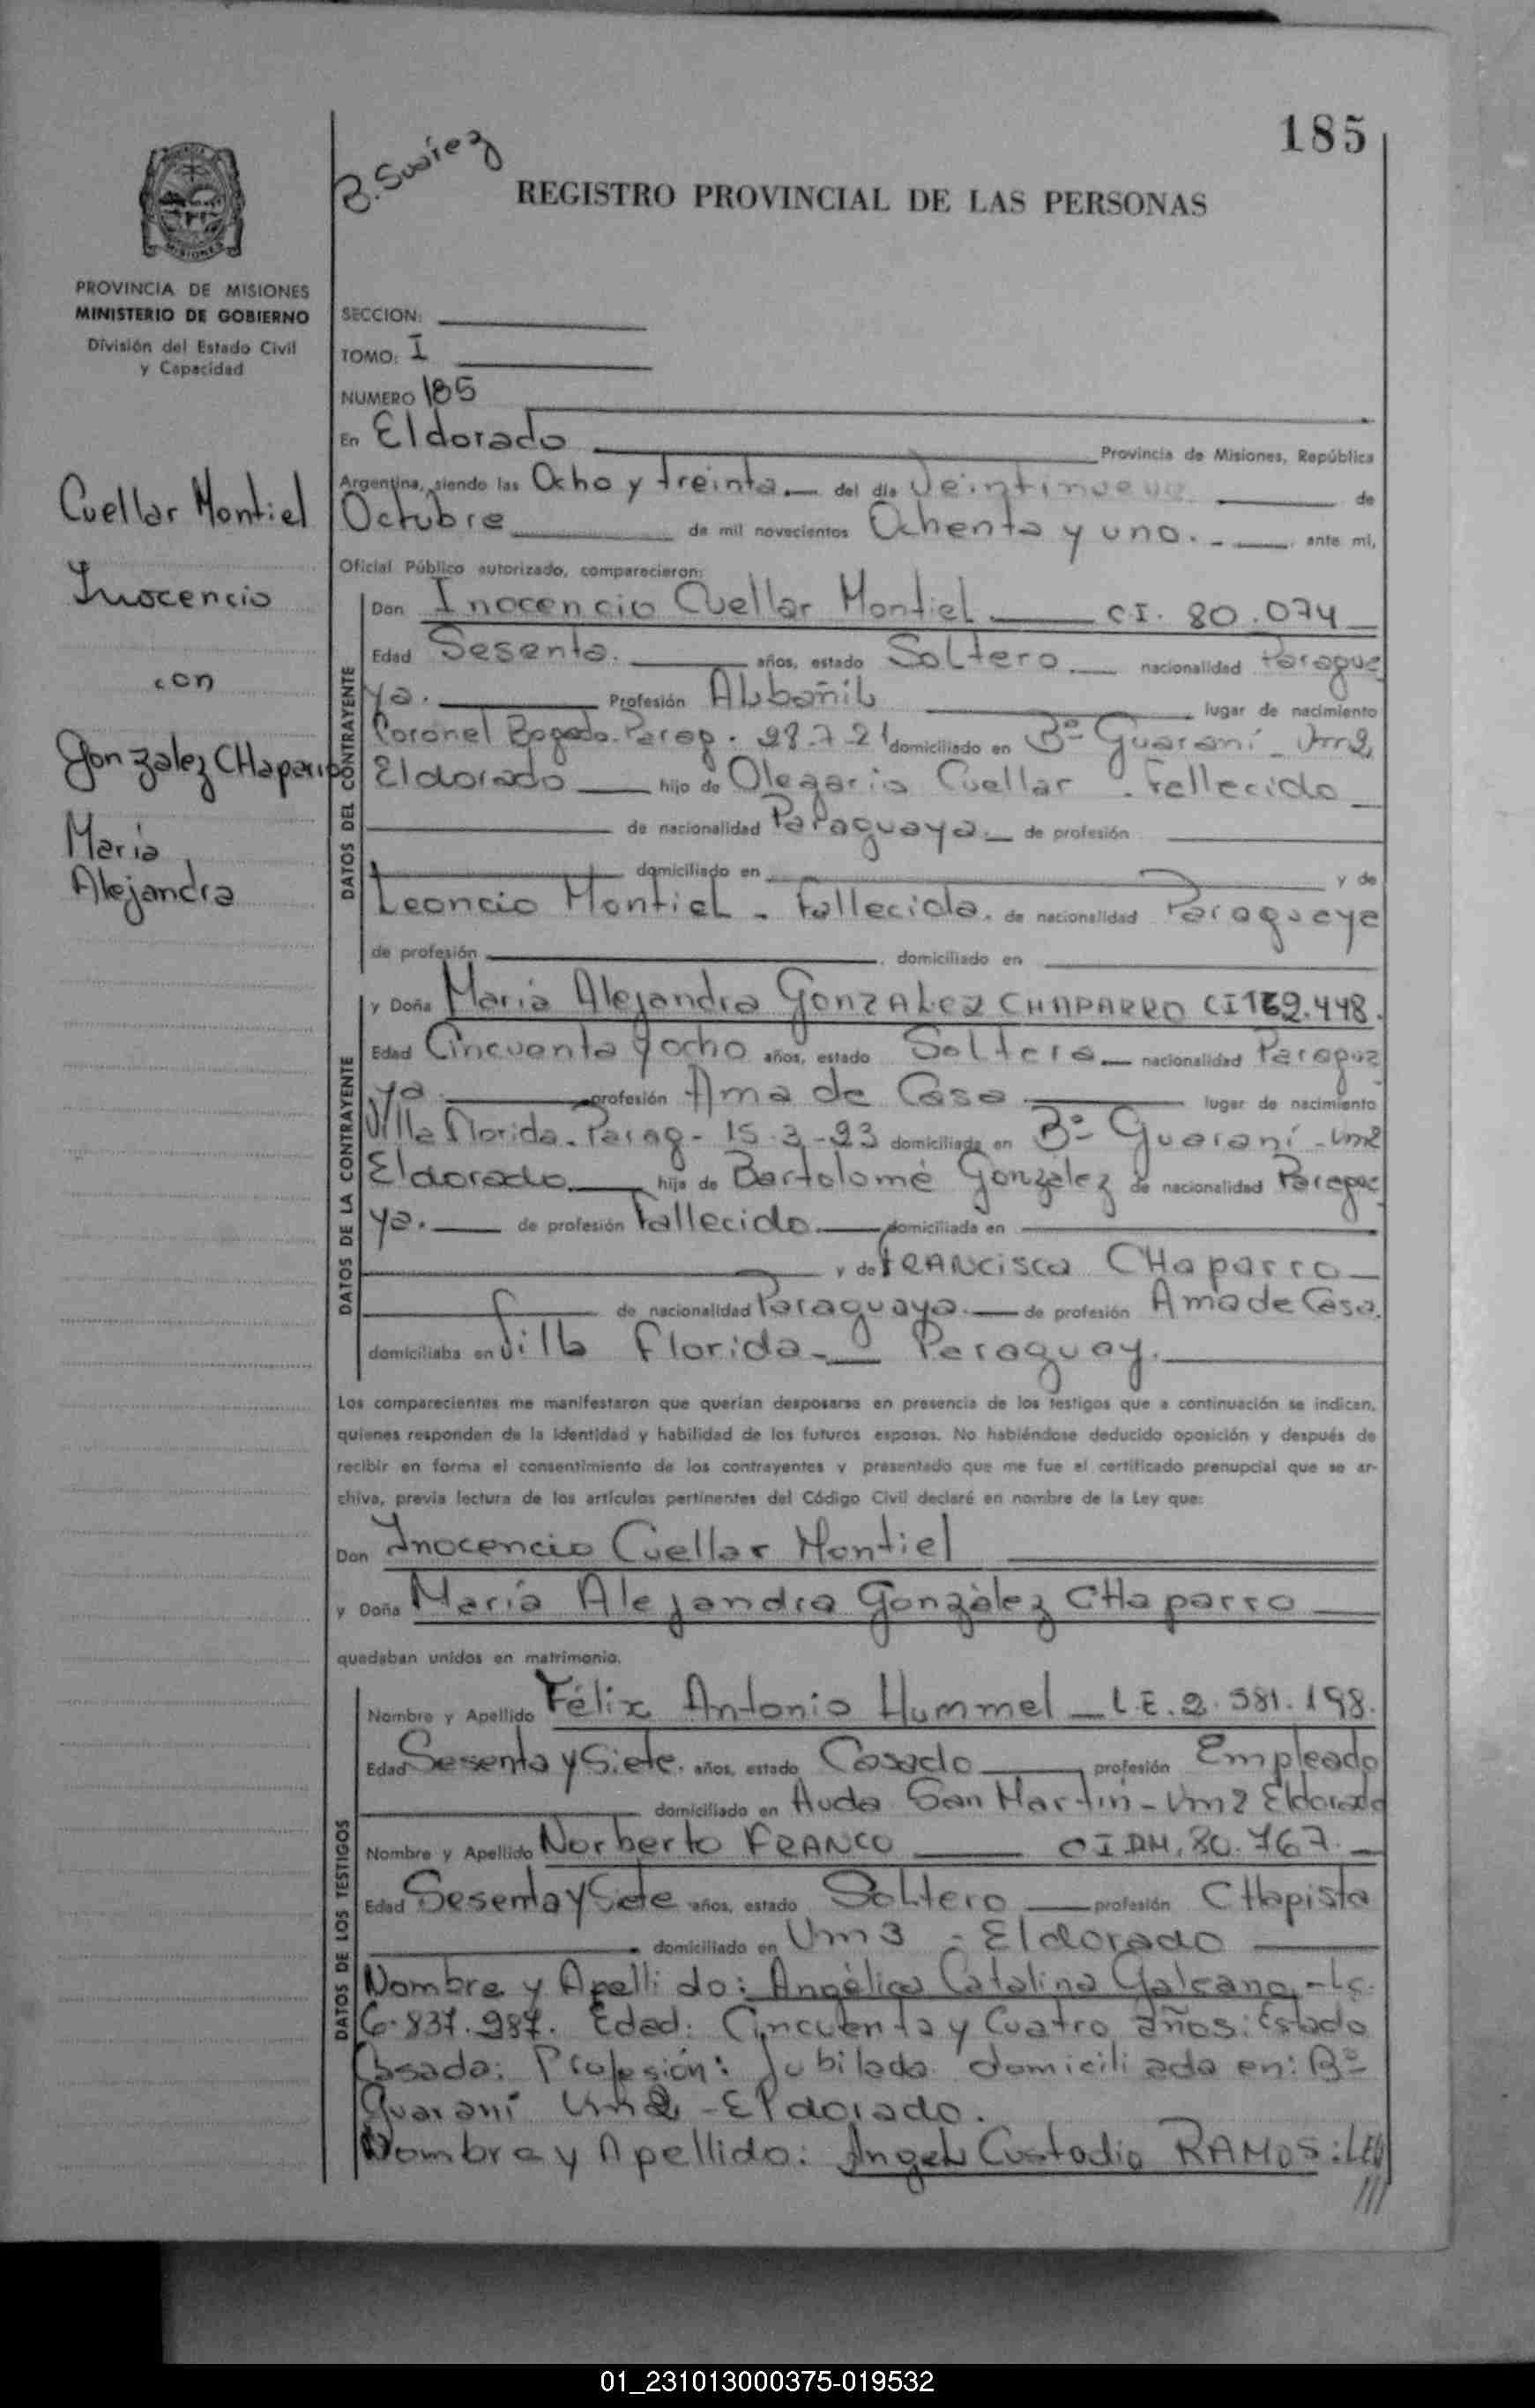 185
B. Suárez
REGISTRO PROVINCIAL DE LAS PERSONAS
PROVINCIA DE MISIONES
MINISTERIO DE GOBIERNO
División del Estado Civil
y Capacidad
SECCION:
TOMO: I
NUMERO 185
En Eldorado Provincia de Misiones, República
Argentina, siendo las Ocho y treinta del día Veintinueve de
Octubre de mil novecientos Ochenta y uno. ante mí,
Oficial Público autorizado, comparecieron:
Cuellar Montiel
Inocencio
con
Gonzalez CHaparro
María
Alejandra
DATOS DEL CONTRAYENTE
Don Inocencio Cuellar Montiel C.I. 80.074
Edad Sesenta. años, estado Soltero nacionalidad Paragua
ya. Profesión Albañil lugar de nacimiento
Coronel Bogado-Parag. 28.7-21 domiciliado en Bº Guaraní - Km2,
Eldorado hijo de Olegario Cuellar - Fallecido
de nacionalidad Paraguaya de profesión
domiciliado en y de
Leoncia Montiel - Fallecida. de nacionalidad Paraguaya
de profesión , domiciliado en
DATOS DE LA CONTRAYENTE
y Doña María Alejandra GONZALEZ CHAPARRO CI 169.448.
Edad Cincuenta y ocho años, estado Soltera nacionalidad Paragua
ya profesión Ama de Casa lugar de nacimiento
Villa Florida-Parag- 15-3-23 domiciliada en Bº Guaraní - Km2
Eldorado hija de Bartolomé González de nacionalidad Paragua
ya. de profesión Fallecido domiciliada en
y de FRANCISCA CHaparro
de nacionalidad Paraguaya. de profesión Ama de Casa.
domiciliaba en Villa Florida - Paraguay.
Los comparecientes me manifestaron que querían desposarse en presencia de los testigos que a continuación se indican,
quienes responden de la identidad y habilidad de los futuros esposos. No habiéndose deducido oposición y después de
recibir en forma el consentimiento de los contrayentes y presentado que me fue el certificado prenupcial que se ar-
chiva, previa lectura de los artículos pertinentes del Código Civil declaré en nombre de la Ley que:
Don Inocencio Cuellar Montiel
y Doña María Alejandra González CHaparro
quedaban unidos en matrimonio.
DATOS DE LOS TESTIGOS
Nombre y Apellido Félix Antonio Hummel L.E. 2.581.198.
Edad Sesenta y Siete. años, estado Casado profesión Empleado
domiciliado en Avda San Martín - Km2 Eldorado
Nombre y Apellido Norberto FRANCO CI DM. 80.767.
Edad Sesenta y Siete años, estado Soltero profesión CHapista
domiciliado en Km3 - Eldorado
Nombre y Apellido: Angélica Catalina Galeano - LC.
6.837.987. Edad: Cincuenta y Cuatro años: Estado
Casada: Profesión: Jubilada domiciliada en: Bº
Guaraní Km2 - Eldorado.
Nombre y Apellido: Angel Custodio RAMOS:
///
01_231013000375-019532